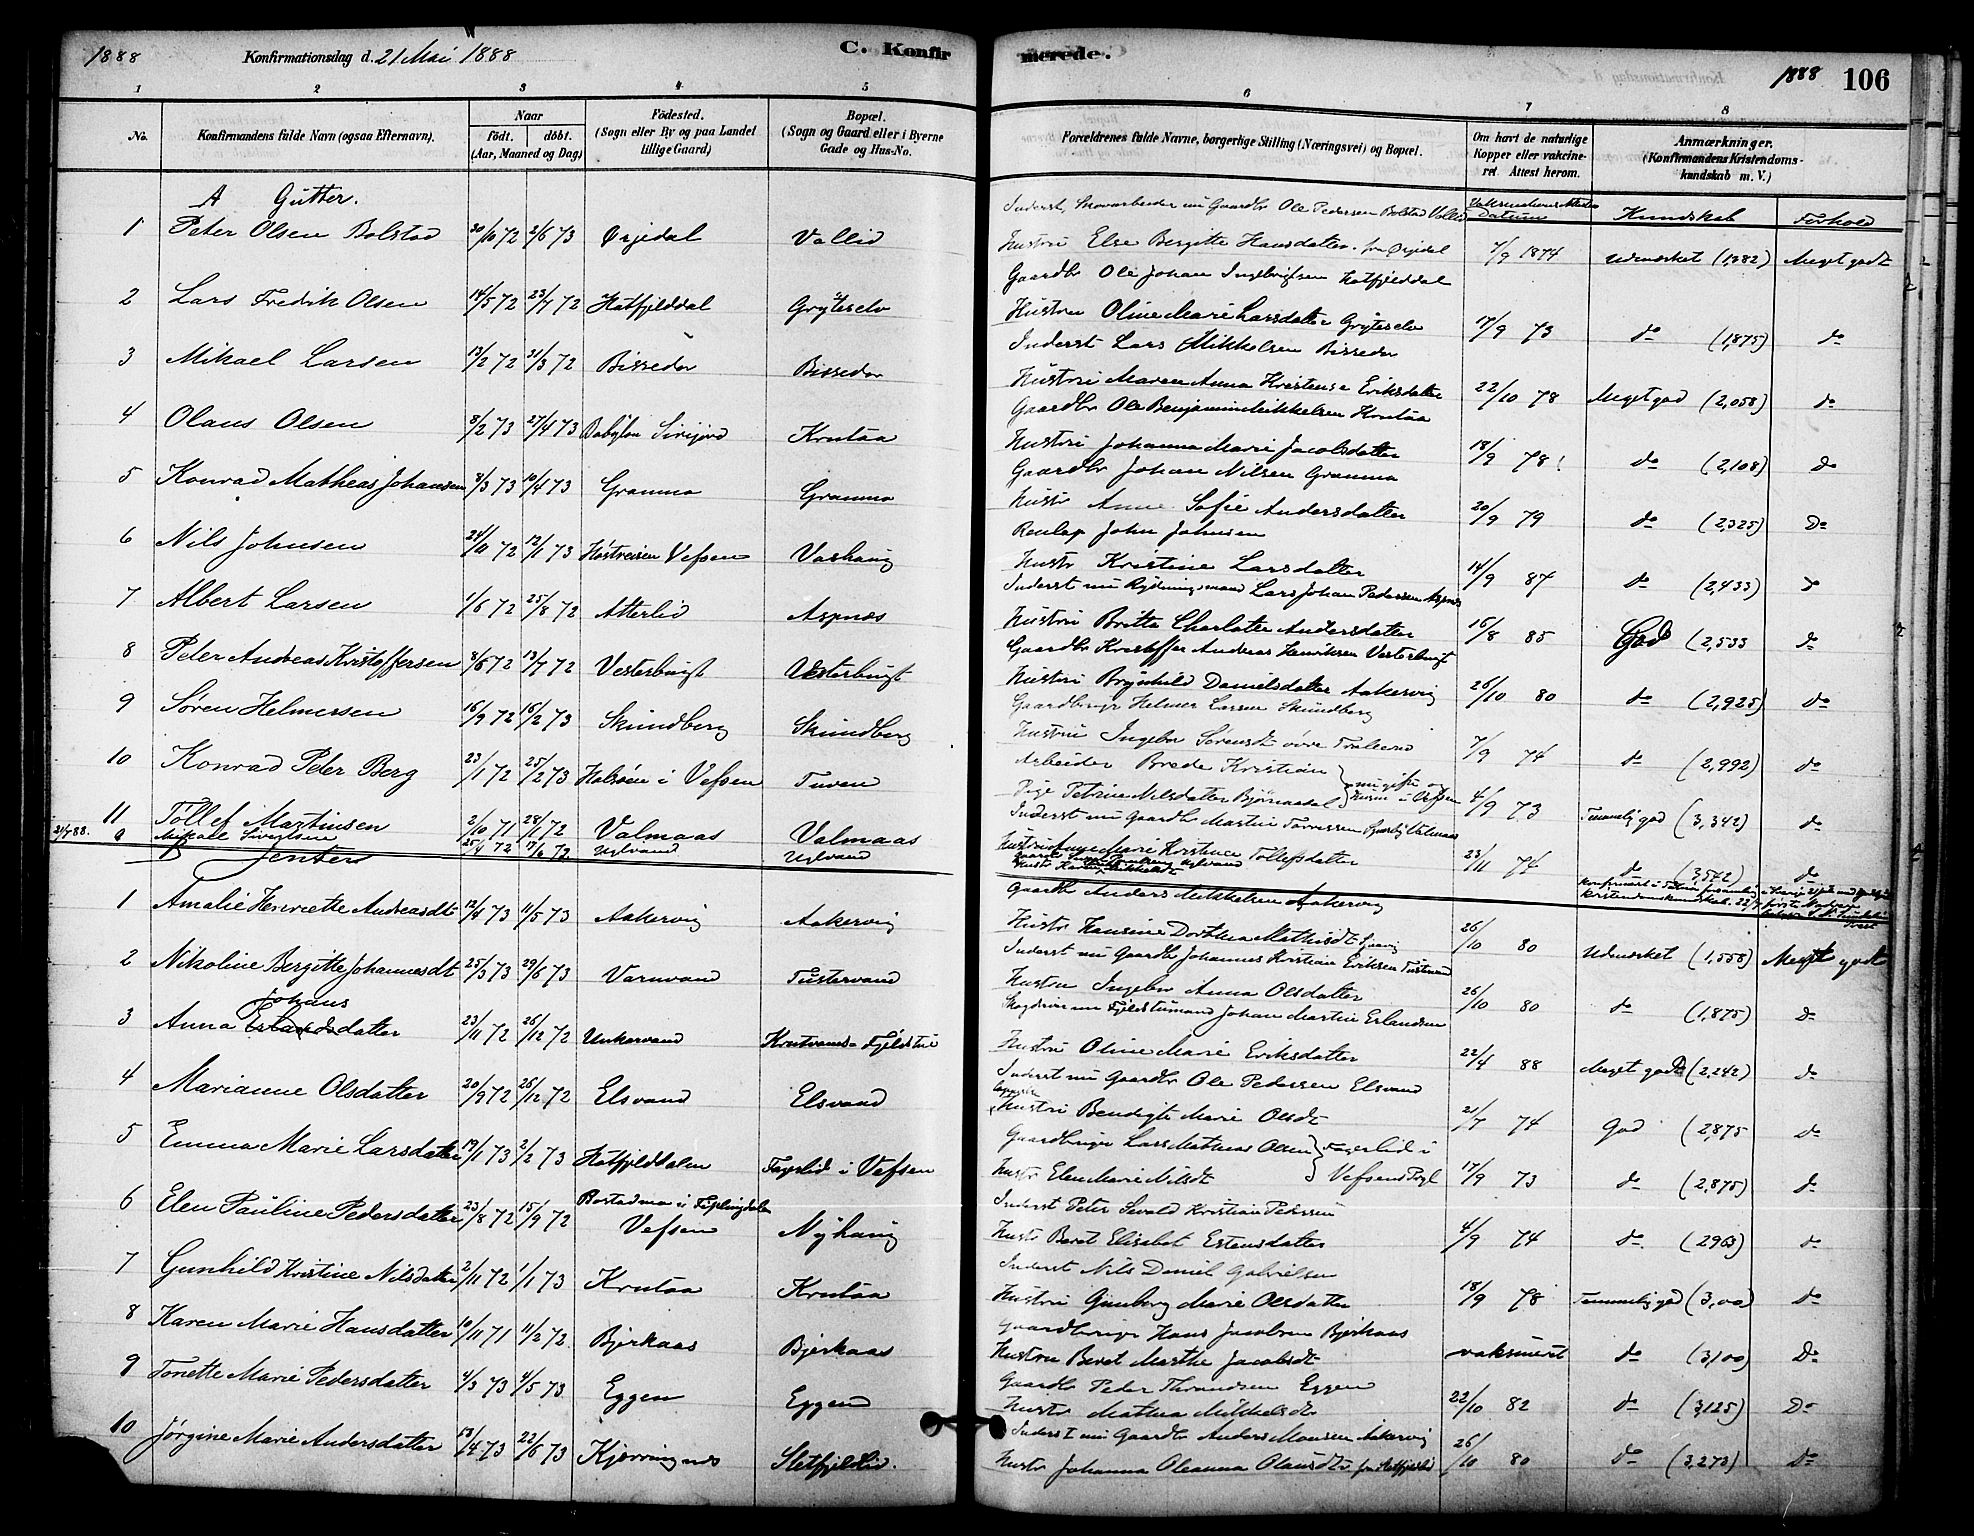 1888 Konfirmationsdag d. 21 Mai 1888 C. Konfirmerede. 1888 106
1 2 3 4 5 6 7 8
No. Konfirmandens fulde Navn (ogsaa Efternavn). Naar født. døbt. (Aar, Maaned og Dag) Fødested. (Sogn eller By og paa Landet tillige Gaard) Bopæl. (Sogn og Gaard eller i Byerne Gade og Hus-No. Forældrenes fulde Navne, borgerlige Stilling (Næringsvei) og Bopæl. Om havt de naturlige Kopper eller vakcineret. Attest herom. Anmærkninger. (Konfirmandens Kristendomskundskab m. V.)
A Gutter. Datum Kundskab Forhold
Inderst, Skovarbeider nu Gaardbr Ole Pedersen Bolstad Vallid
1 Peter Olsen Bolstad 20/10 72 2/6 73 Ørjedal Vallid Hustru Else Bergitte Hansdatter fra Ørjedal 7/9 1874 Udmærket (1,382) Meget godt
Gaardbr Ole Johan Ingebrigtsen Hatfjelddal
2 Lars Fredrik Olsen 14/5 72 23/7 72 Hatfjelddal Gryteselv Hustru Oline Marie Larsdatter Gryteselv 17/9 73 do (1,875) do
Inderst Lars Mikkelsen Bissedor
3 Mikael Larsen 13/2 72 21/3 72 Bissedor Bissedor Hustru Maren Anna Kristense Eriksdatter 22/10 78 Meget god (2,058) do
Gaardbr Ole Benjamin Mikkelsen Krutaa
4 Olaus Olsen 8/2 73 27/4 73 Babylon Krutaa Hustru Johanna Marie Jacobsdatter 18/9 78 do (2,108) do
Gaardbr Johan Nilsen Gramma
5 Konrad Mathias Johansen 8/3 73 10/4 73 Gramma Gramma Hustr Anne Sofie Andersdatter 20/9 79 do (2,325) Do
Renlap John Johnsen
6 Nils Johnsen 24/11 72 12/1 73 Vefsen Vashaug Hustr Kristine Larsdatter 14/9 87 do (2,433) do
Inderst nu Rydningsmand Lars Johan Pedersen Aspnæs
7 Albert Larsen 1/6 72 25/8 72 Atterlid Aspnæs Hustru Britta Charlotte Andersdatter 16/8 85 God (2,533 do
Gaardbr Kristoffer Andreas Henriksen Vesterbugt
8 Peter Andreas Kristoffersen 8/6 72 13/7 72 Vesterbugt Vesterbugt Hustru Brynhild Danielsdatter Aakervig 26/10 80 do (2,925) do
Gaardbruger Helmer Larsen Skundberg
9 Søren Helmersen 16/9 72 16/2 73 Skundberg Skundberg Hustru Ingebor Sørensdt 7/9 74 do (2,992) do
Arbeider Brede Kristian
10 Konrad Peter Berg 23/1 72 25/2 73 Halsøen i Vefsen Tuven Pige Petrine Nilsdatter Bjørnaadal 4/9 73 Temmelig god (3,342) do
Inderst nu Gaardbr Martin Valmaas
11 Tollef Martinsen 2/10 71 28/1 72 Valmaas Valmaas Hustru Inge Marie Kristence Tollefsdatter 23/11 74 do (3,542) do
21/7 88. Mikael Sivertsen 25/4 72 17/6 72 Uglvand Uglvand
Jenter
Gaardbr Anders Mikkelsen Aakervig
1 Amalie Henriette Andreasdt 12/4 73 11/5 73 Aakervig Aakervig Hustr Hansine Dorthea Mathisdt 26/10 80 Udmærket (1,558) Meget godt
Inderst nu Gaardbr Johannes Kristian Eriksen Tustervand
2 Nikoline Bergitte Johannesdt 25/3 73 29/6 73 Varnvan Tustervand Hustru Ingebor Anna Olsdatter 26/10 80 do (1,875) Do
Johans
Fjeldstumand Johan Martin Erlandsen
3 Anna Erlandsdatter 23/11 72 26/12 72 Unkervand Krutvand-Fjeldstue Hustru Oline Marie Eriksdatter 22/4 88 Meget god (2,242) do
Inderst nu Gaardbr Ole Pedersen Elsvand
4 Marianne Olsdatter 20/9 72 26/12 72 Elsvand Elsvand Hustru Bendigte Marie Olsdt 21/7 74 God (2,875 do
Gaardbruger Lars Mathias Olsen Fagerlid i
5 Emma Marie Larsdatter 19/1 73 2/2 73 Hatfjelddalen Fagerlid i Vefsen Hustr Elen Marie Nilsdt Vefsens Pgl 17/9 73 do (2,875) do
Inderst Peter Sevald Kristian Pedersen
6 Elen Pauline Pedersdatter 23/8 72 15/9 72 Vefsen Nyhaug Hustr Beret Elisabet Estensdatter 4/9 74 do (2963) do
Inderst Nils Daniel Gabrielsen
7 Gunhild Kristine Nilsdatter 2/11 72 1/1 73 Krutaa Krutaa Hustru Gunborg Marie Olsdatter 18/9 78 Temmelig god (3,00) do
Gaardbruger Hans Jacobsen Bjerkaas
8 Karen Marie Hansdatter 10/11 71 11/2 72 Bjerkaas Bjerkaas Hustru Beret Marthe Jacobsdt vaksineret do (3,100) Do
Gaardbr Peder Throndsen Eggen
9 Tonette Marie Pedersdatter 4/3 73 4/5 73 Eggen Eggen Hustr Mathea Mikkelsdt 22/10 82 do (3,125) Do
Inderst nu Gaardbr Anders Monsen Aakervig
10 Jørgine Marie Andersdatter 13/4 73 22/6 73 Kjerringnes Sletfjeldlid. Hustr Johanna Oleanna Olausdtr 26/10 80 do (3,273) Do